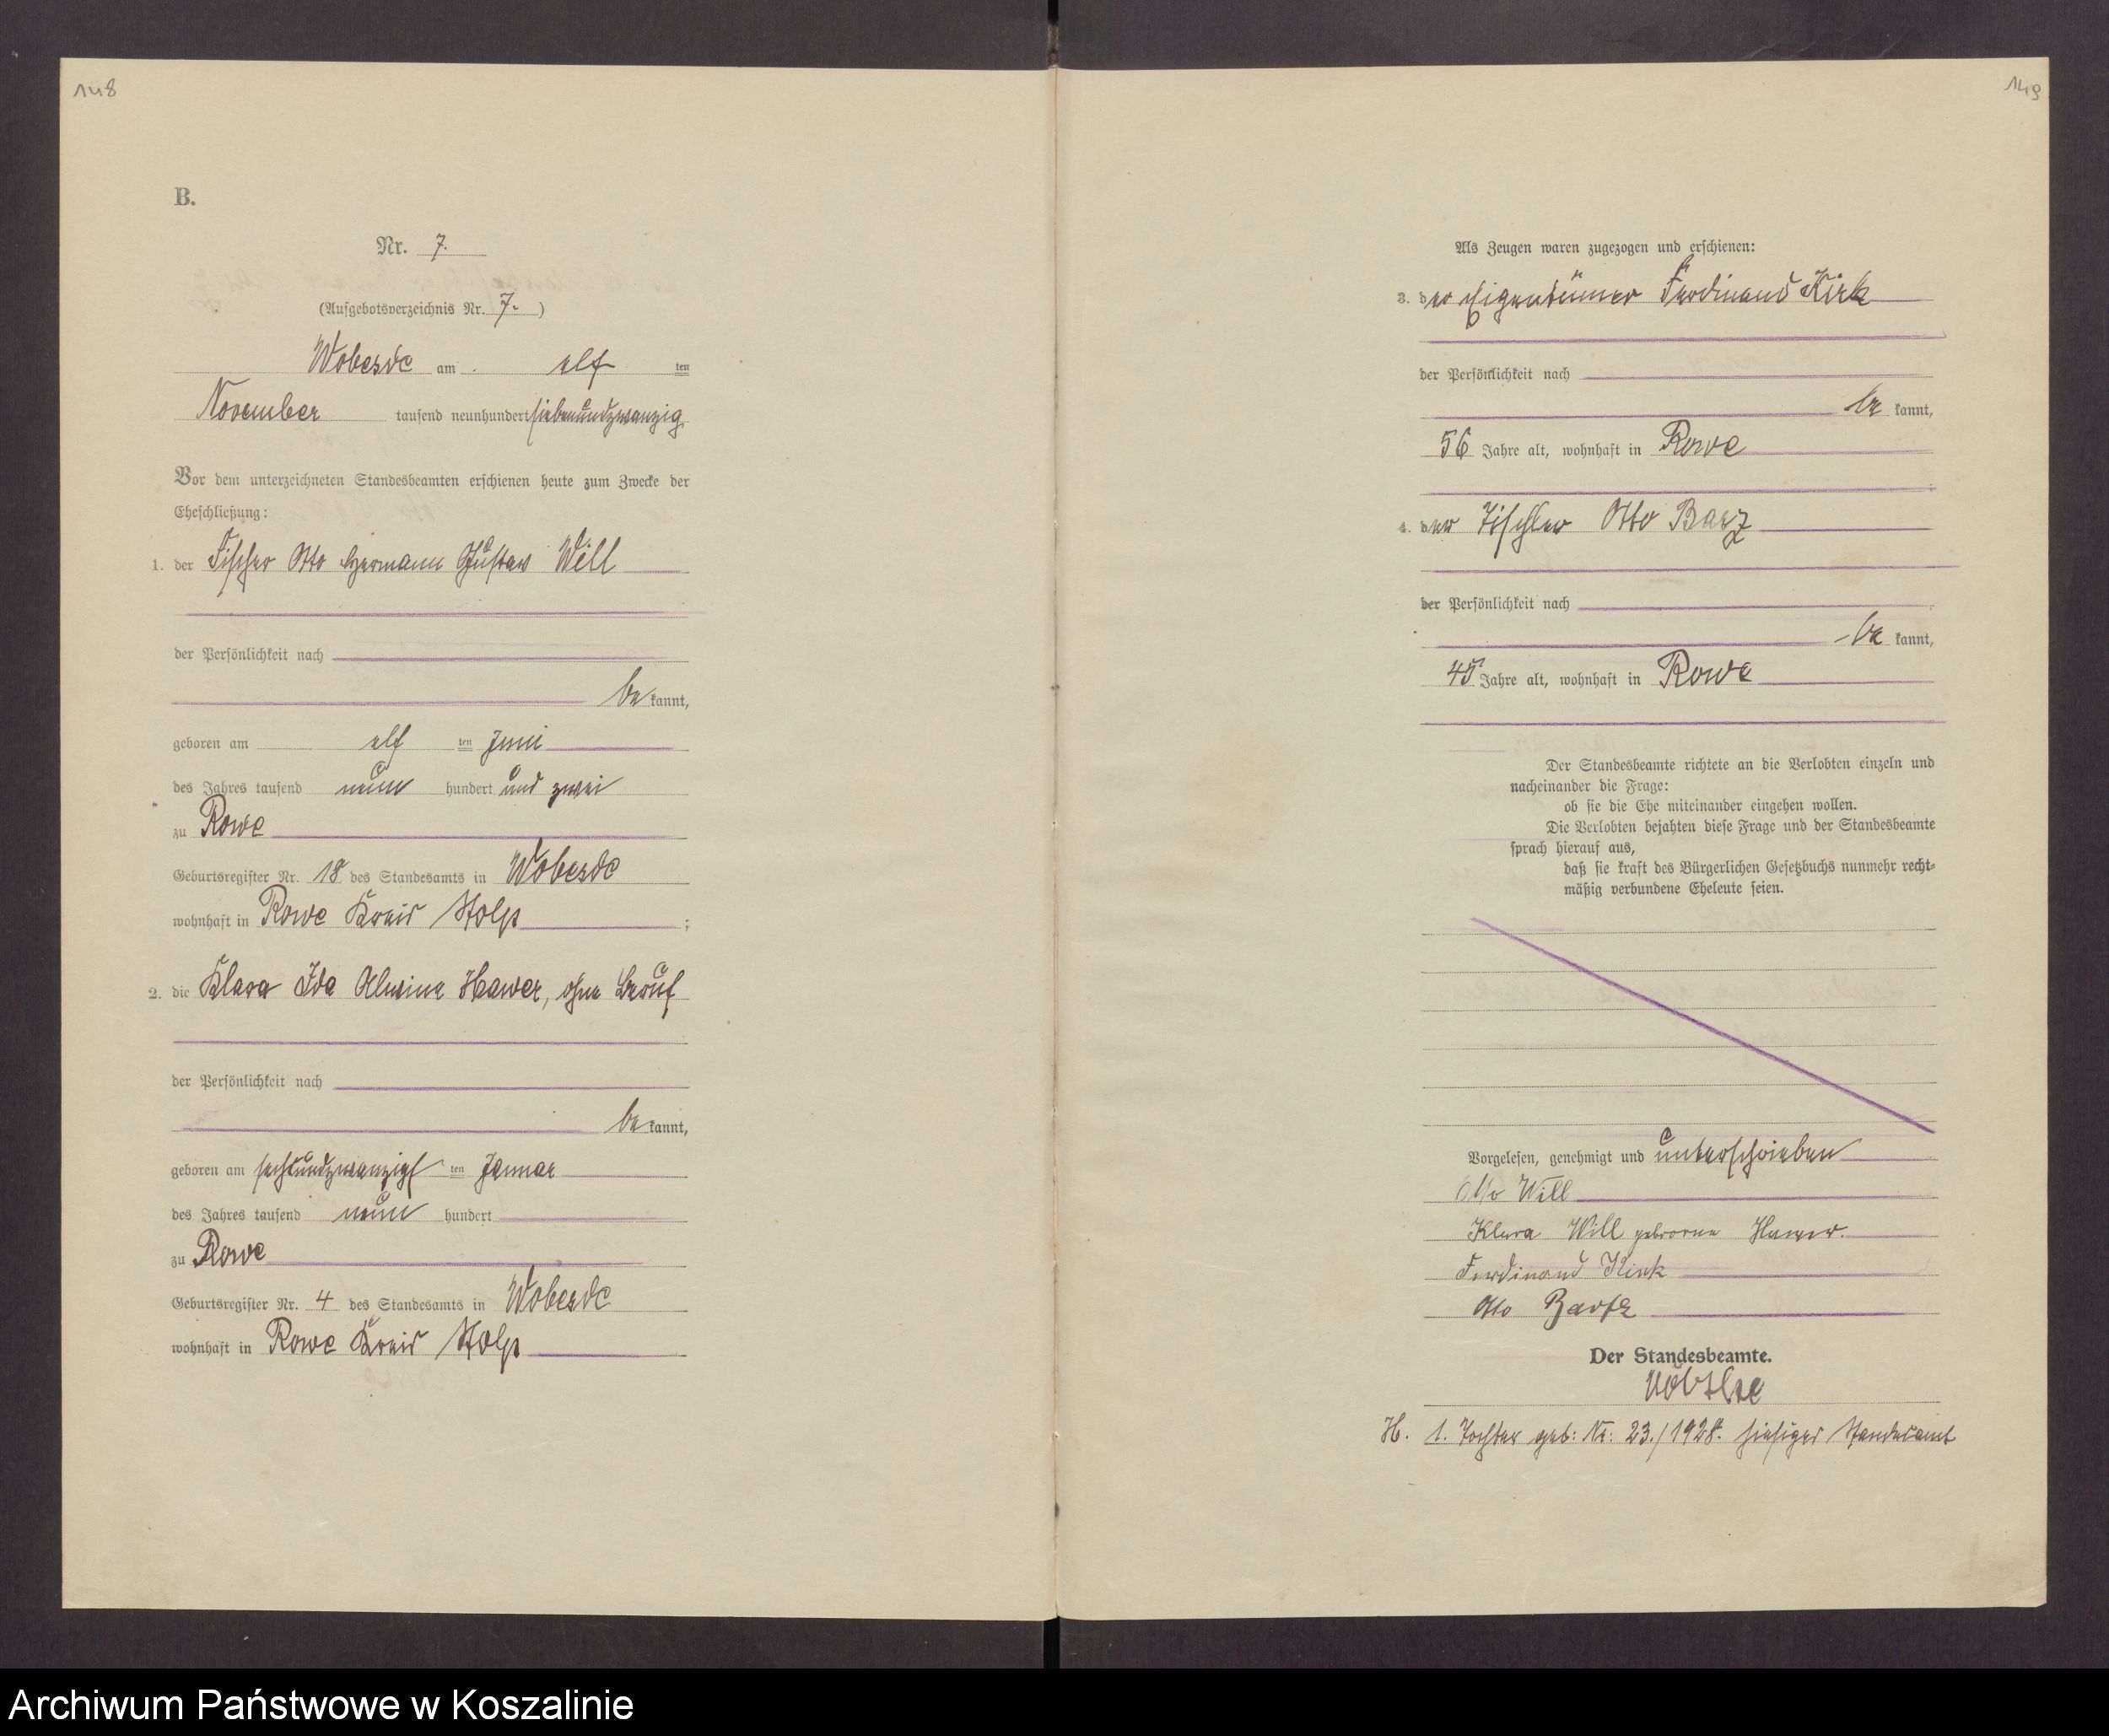 148
B.
Nr. 7.
(Aufgebotsverzeichnis Nr. 7. )
Wobesde am elf ten
November tausend neunhundert siebenundzwanzig
Vor dem unterzeichneten Standesbeamten erschienen heute zum Zwecke der
Eheschließung:
1. der Fischer Otto Hermann Gustav Will
der Persönlichkeit nach
be kannt,
geboren am elf ten Juni
des Jahres tausend neun hundert und zwei
zu Rowe
Geburtsregister Nr. 18 des Standesamts in Wobesde
wohnhaft in Rowe Kreis Stolp ;
2. die Klara Ida Alwine Hawer, ohne Beruf
der Persönlichkeit nach
be kannt,
geboren am sechsundzwanzigs ten Januar
des Jahres tausend neun hundert
zu Rowe
Geburtsregister Nr. 4 des Standesamts in Wobesde
wohnhaft in Rowe Kreis Stolp
149
Als Zeugen waren zugezogen und erschienen:
3. der Eigentümer Ferdinand Kirk
der Persönlichkeit nach
be kannt,
56 Jahre alt, wohnhaft in Rowe
4. der Tischler Otto Barz
der Persönlichkeit nach
be kannt,
45 Jahre alt, wohnhaft in Rowe
Der Standesbeamte richtete an die Verlobten einzeln und
nacheinander die Frage:
ob sie die Ehe miteinander eingehen wollen.
Die Verlobten bejahten diese Frage und der Standesbeamte
sprach hierauf aus,
daß sie kraft des Bürgerlichen Gesetzbuchs nunmehr recht-
mäßig verbundene Eheleute seien.
Vorgelesen, genehmigt und unterschrieben
Otto Will
Klara Will geborene Hawer.
Ferdinand Kirk
Otto Bartz
Der Standesbeamte.
H. 1. Tochter geb: Nr: 23./1928. hiesiges Standesamt
Archiwum Państwowe w Koszalinie